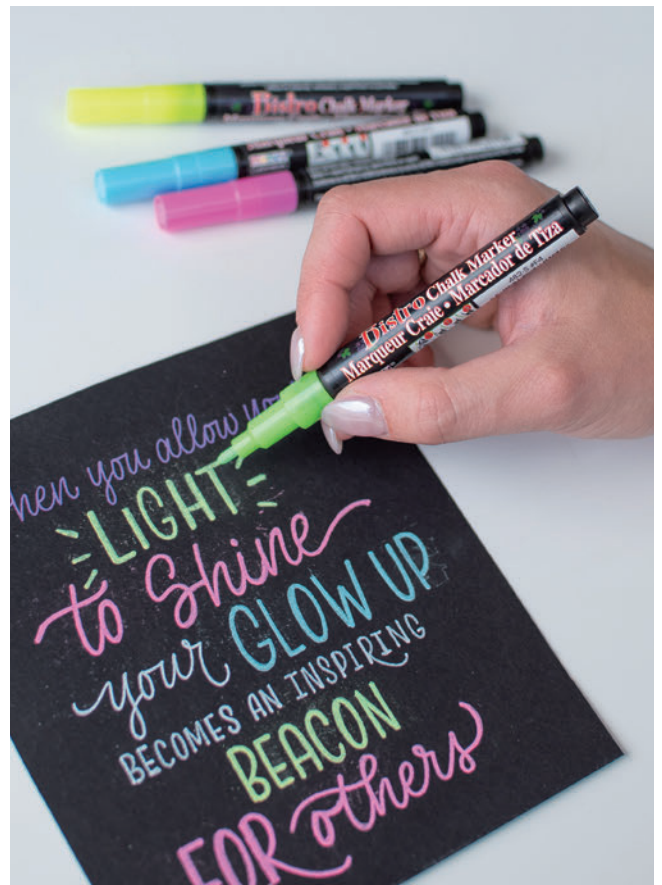 Bistro Chalk Marker
Bistro Chalk Marker
Marqueur Craie • Marcador de Tiza
hen you allow yo
LIGHT
to Shine
your GLOW UP
BECOMES AN INSPIRING
BEACON
FOR others